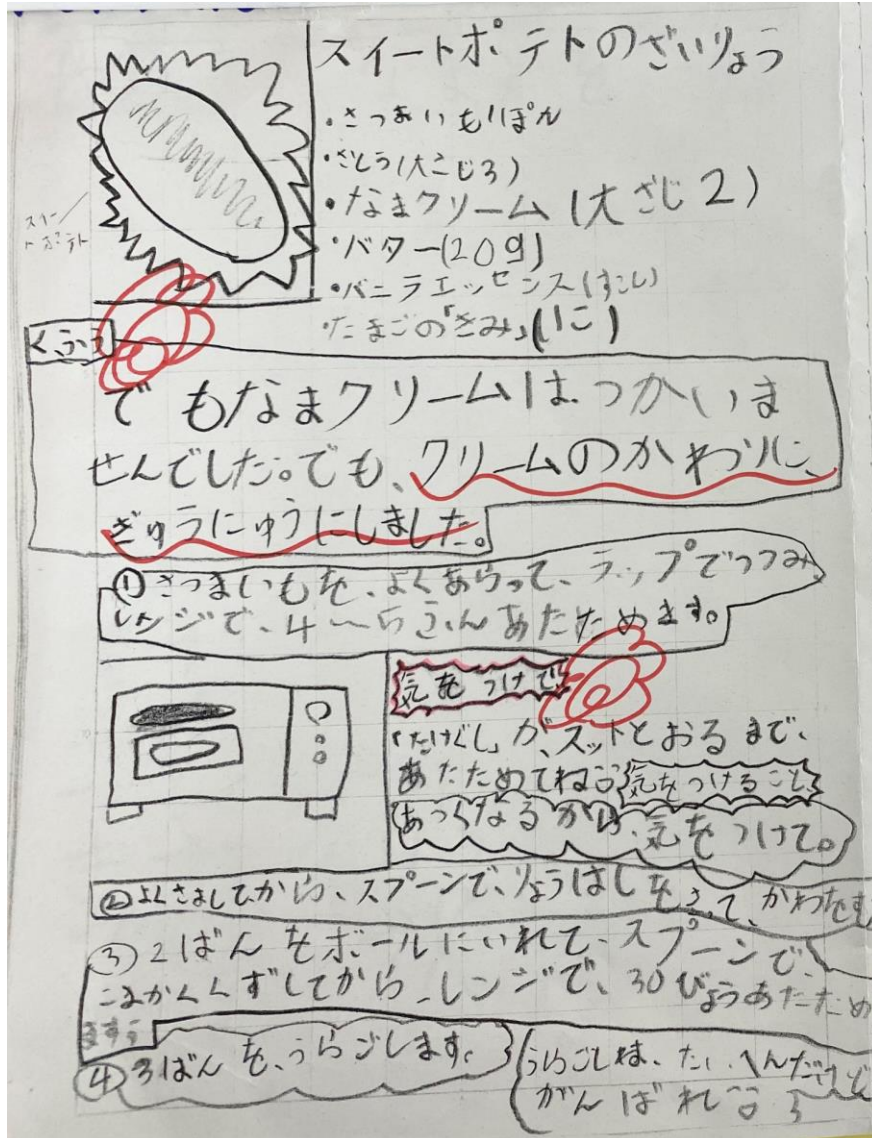 スイートポテトのざいりょう
・さつまいも1ぽん
・さとう(大こじ3)
・なまクリーム(大さじ2)
・バター(20g)
・バニラエッセンス(すこし)
・たまごの「きみ」(1こ)
スイートポテト
くふう
でもなまクリームは、つかいま
せんでした。でも、クリームのかわりに、
ぎゅうにゅうにしました。
①さつまいもを、よくあらって、ラップでつつみ、
レンジで、4〜5ふんあたためます。
気をつけて
「たけぐし」が、スットとおるまで、
あたためてね!!
気をつけること
あつくなるから、気をつけて。
②よくさましてから、スプーンで、りょうはしを、って、かわをむ
③2ばんをボールにいれて、スプーンで、
こまかくくずしてから、レンジで、30びょうあたため
ます。
④3ばんを、うらごします。
うらごしは、たいへんだけど
がんばれ!!